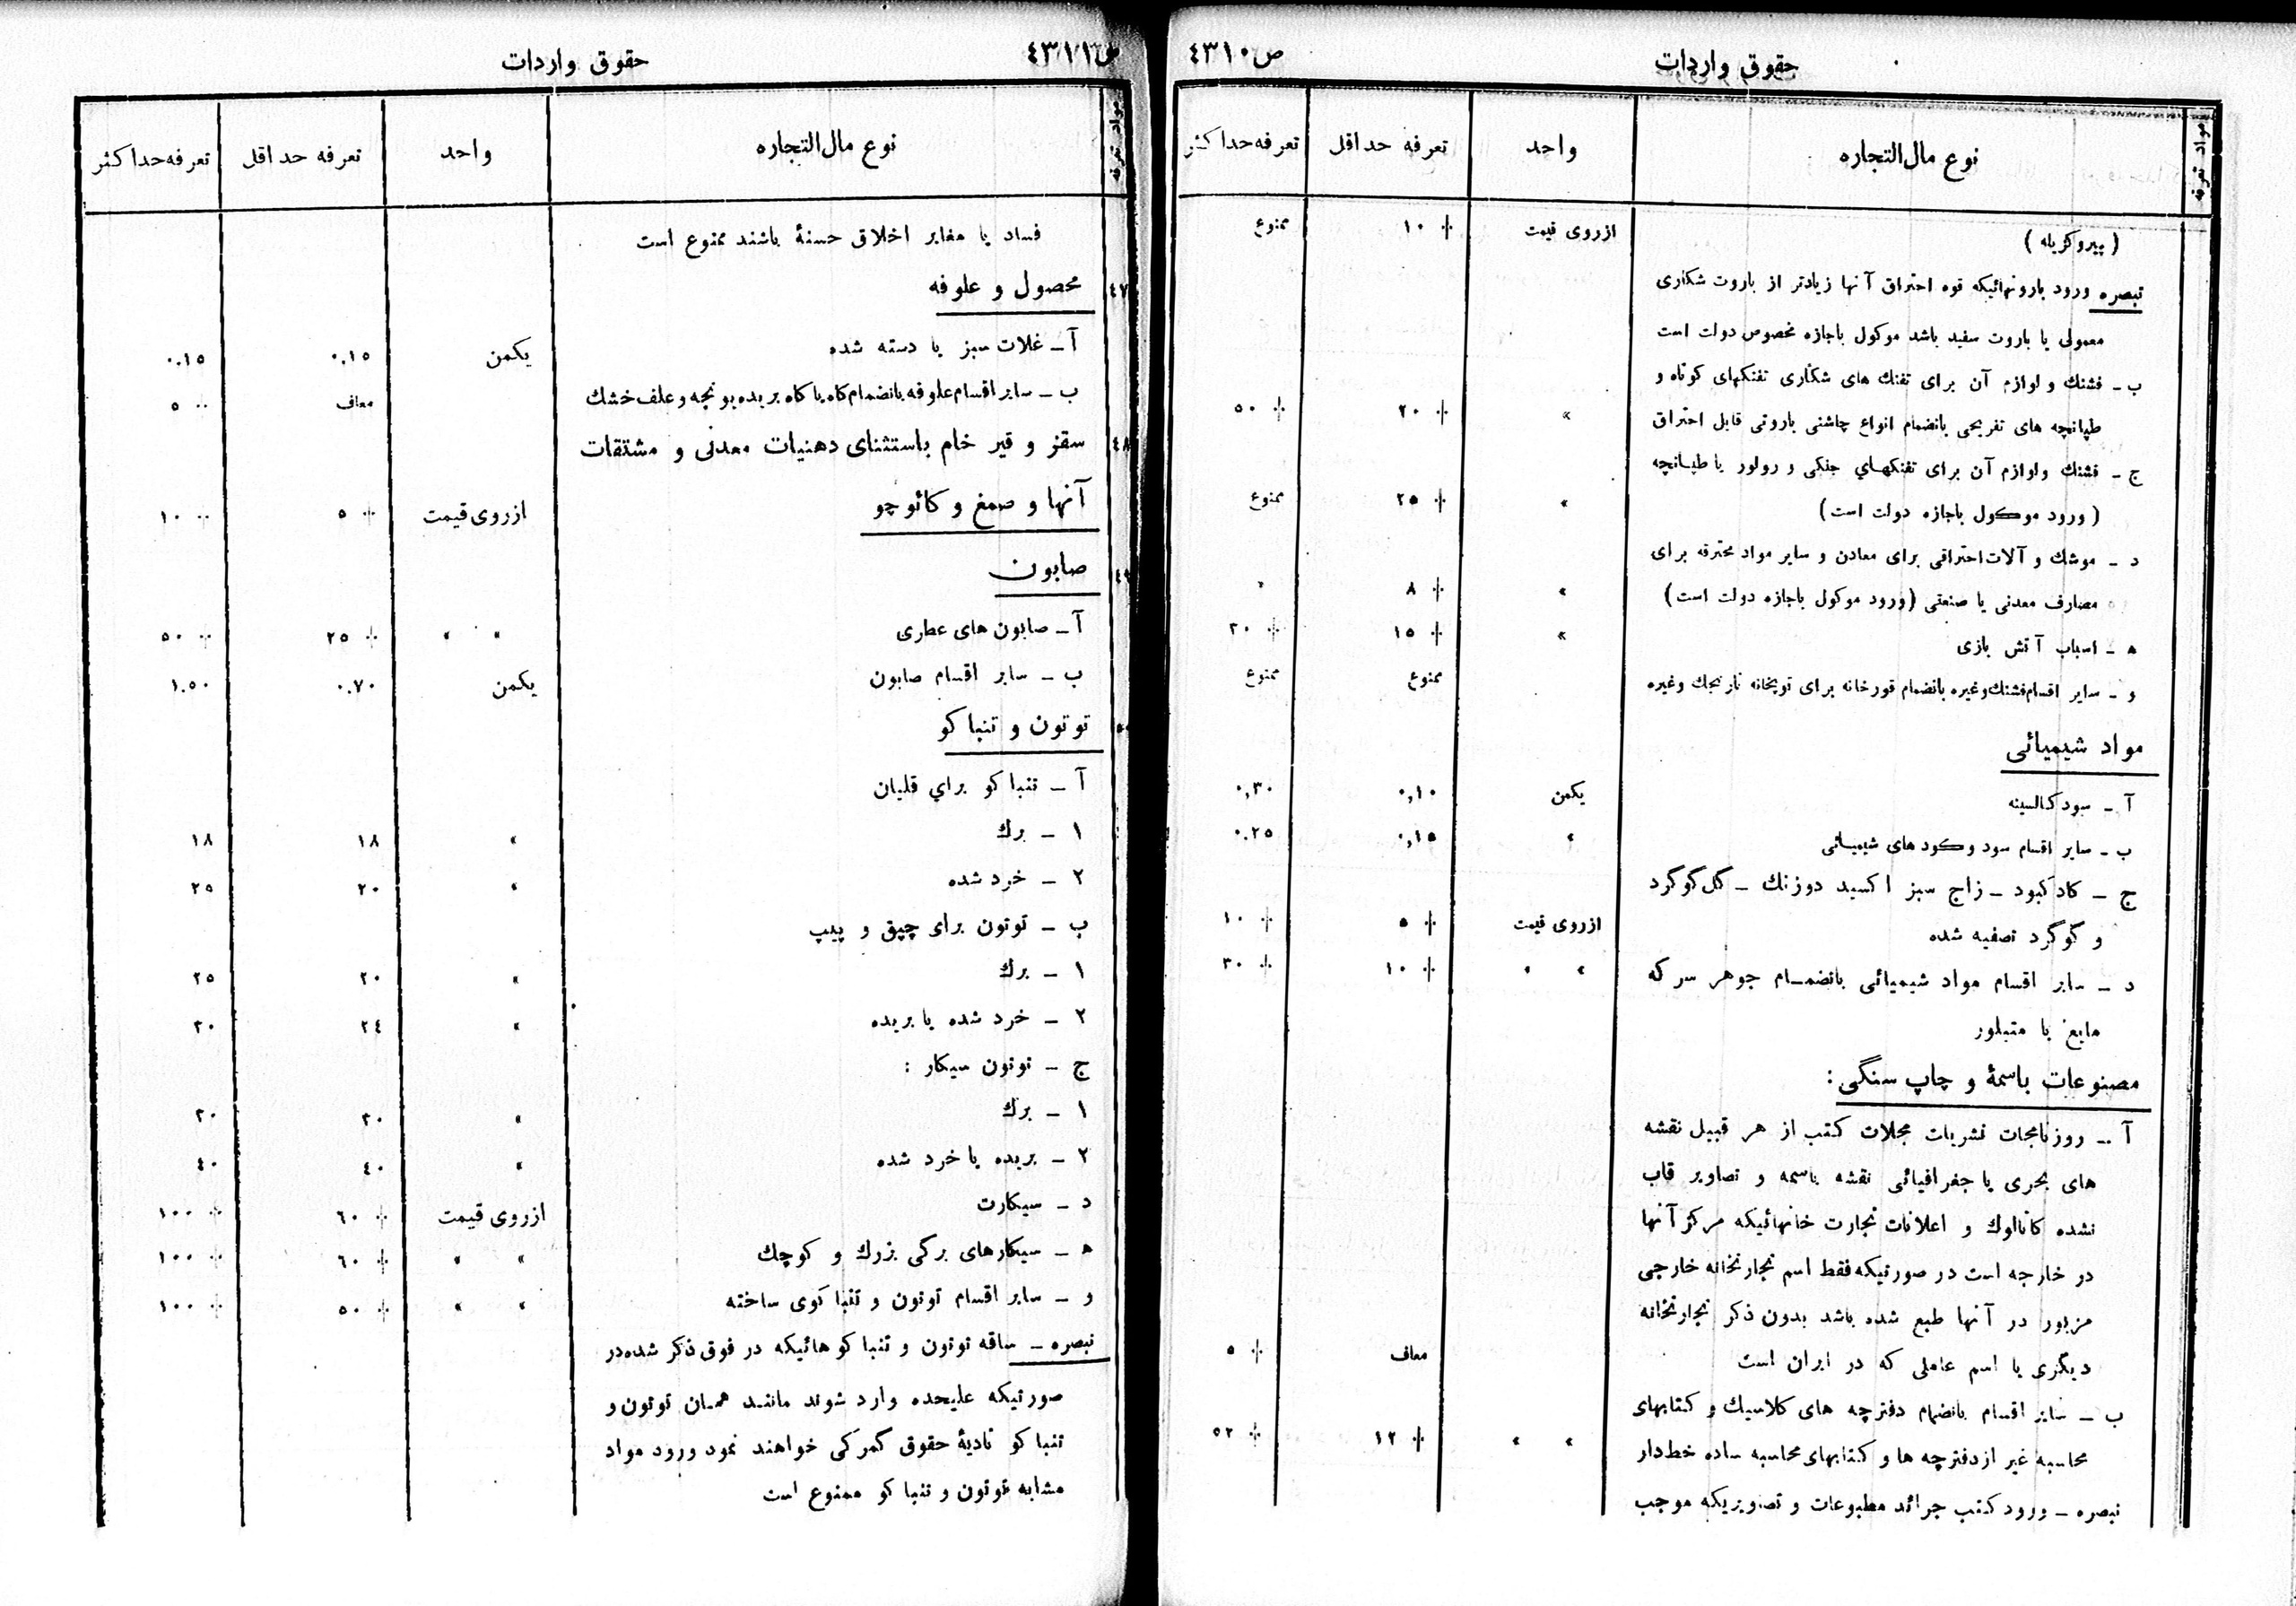 ص ٤٣١٠
حقوق واردات
مواد تعرفه
نوع مال‌التجاره
واحد
تعرفه حداقل
تعرفه حداکثر
(پیروکزیله) ازروی قیمت ٪ ١٠ ممنوع
تبصره ورود باروتهائیکه قوه احتراق آنها زیادتر از باروت شکاری
معمولی یا باروت سفید باشد موکول باجازه مخصوص دولت است
ب ـ فشنك و لوازم آن برای تفنك های شکاری تفنکهای کوتاه و
طپانچه های تفریحی بانضمام انواع چاشنی باروتی قابل احتراق » ٪ ٢٠ ٪ ٥٠
ج ـ فشنك ولوازم آن برای تفنکهاي جنکی و رولور یا طپانچه
(ورود موکول باجازه دولت است) » ٪ ٢٥ ممنوع
د ـ موشك و آلات احتراقی برای معادن و سایر مواد محترقه برای
مصارف معدنی یا صنعتی (ورود موکول باجازه دولت است) » ٪ ٨ »
ه ـ اسباب آتش بازی » ٪ ١٥ ٪ ٣٠
و ـ سایر اقسام فشنك وغیره بانضمام قورخانه برای توپخانه نارنجك وغیره ممنوع ممنوع
مواد شیمیائی
آ ـ سود کالسینه یکمن ٠,١٠ ٠,٣٠
ب ـ سایر اقسام سود وکود های شیمیائی » ٠,١٥ ٠.٢٥
ج ـ کاد کبود ـ زاج سبز اکسید دوزنك ـ کل کوکرد
و کوکرد تصفیه شده ازروی قیمت ٪ ٥ ٪ ١٠
د ـ سایر اقسام مواد شیمیائی بانضمام جوهر سرکه » » ٪ ١٠ ٪ ٣٠
مایع یا متبلور
مصنوعات باسمهٔ و چاپ سنگی:
آ ـ روزنامجات نشریات مجلات کتب از هر قبیل نقشه
های بحری یا جغرافیائی نقشه باسمه و تصاویر قاب
نشده کاتالوك و اعلانات تجارت خانهائیکه مرکز آنها
در خارجه است در صورتیکه فقط اسم تجارتخانه خارجی
مزبور در آنها طبع شده باشد بدون ذکر تجارتخانه
دیگری یا اسم عاملی که در ایران است معاف ٪ ٥
ب ـ سایر اقسام بانضمام دفترچه های کلاسیك و کتابهای
محاسبه غیر از دفترچه ها و کتابهای محاسبه ساده خط‌دار » » ٪ ١٢ ٪ ٥٢
تبصره ـ ورود کتب جرائد مطبوعات و تصاویریکه موجب
ص ٤٣١١
حقوق واردات
مواد تعرفه
نوع مال‌التجاره
واحد
تعرفه حداقل
تعرفه حداکثر
فساد یا مغایر اخلاق حسنهٔ باشند ممنوع است
٤٧ محصول و علوفه
آ ـ غلات سبز یا دسته شده یکمن ٠.١٥ ٠.١٥
ب ـ سایر اقسام علوفه بانضمام کاه یا کاه بریده یونجه و علف خشك معاف ٪ ٥
٤٨ سقز و قیر خام باستثنای دهنیات معدنی و مشتقات
آنها و صمغ و کائوچو ازروی قیمت ٪ ٥ ٪ ١٠
٤٩ صابون
آ ـ صابون های عطاری » » ٪ ٢٥ ٪ ٥٠
ب ـ سایر اقسام صابون یکمن ٠.٧٠ ١.٥٠
٥٠ توتون و تنباکو
آ ـ تنباکو براي قلیان
١ ـ برك » ١٨ ١٨
٢ ـ خرد شده » ٢٠ ٢٥
ب ـ توتون برای چپق و پیپ
١ ـ برك » ٢٠ ٢٥
٢ ـ خرد شده یا بریده » ٢٤ ٣٠
ج ـ توتون سیکار :
١ ـ برك » ٣٠ ٣٠
٢ ـ بریده یا خرد شده » ٤٠ ٤٠
د ـ سیکارت ازروی قیمت ٪ ٦٠ ٪ ١٠٠
ه ـ سیکارهای برکی بزرك و کوچك » » ٪ ٦٠ ٪ ١٠٠
و ـ سایر اقسام توتون و تنباکوی ساخته » » ٪ ٥٠ ٪ ١٠٠
تبصره ـ ساقه توتون و تنباکوهائیکه در فوق ذکر شده در
صورتیکه علیحده وارد شوند مانند همان توتون و
تنباکو تادیهٔ حقوق گمرکی خواهند نمود ورود مواد
مشابه توتون و تنباکو ممنوع است